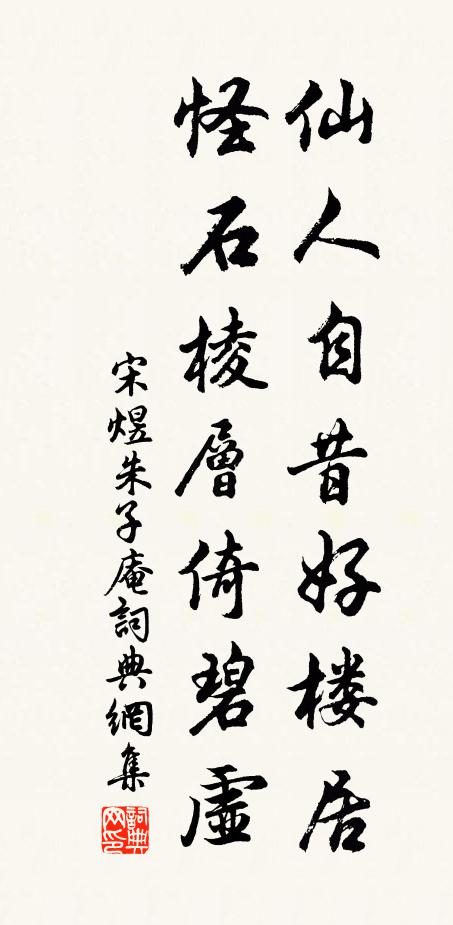 仙人自昔好楼居
怪石棱層倚碧虛
宋煜朱子庵詞典網集
詞典网印